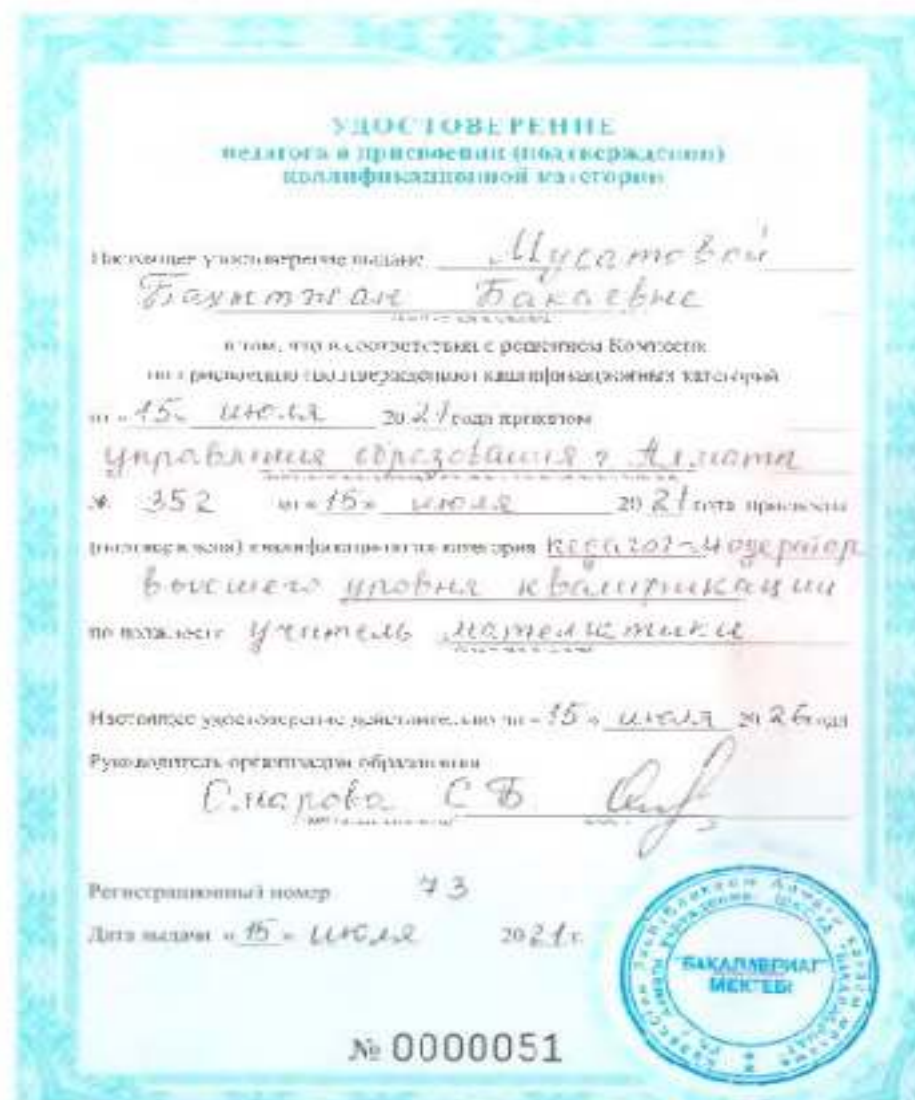 УДОСТОВЕРЕНИЕ
педагога о присвоении (подтверждении)
квалификационной категории
Настоящее удостоверение выдано Мусатовой
Бакаевне
в том, что в соответствии с решением Комиссии
по присвоению (подтверждению) квалификационных категорий
от «15» июля 2021 года приказом
управления образования г Алматы
№ 352 от «15» июля 2021 года присвоена
(подтверждена) квалификационная категория педагог-модератор
высшего уровня квалификации
по должности учитель математики
Настоящее удостоверение действительно до «15» июля 2026 года
Руководитель организации образования
Омарова С Б
Регистрационный номер 73
Дата выдачи «15» июля 2021 г.
БАКАЛАВРИАТ
МЕКТЕБІ
№ 0000051